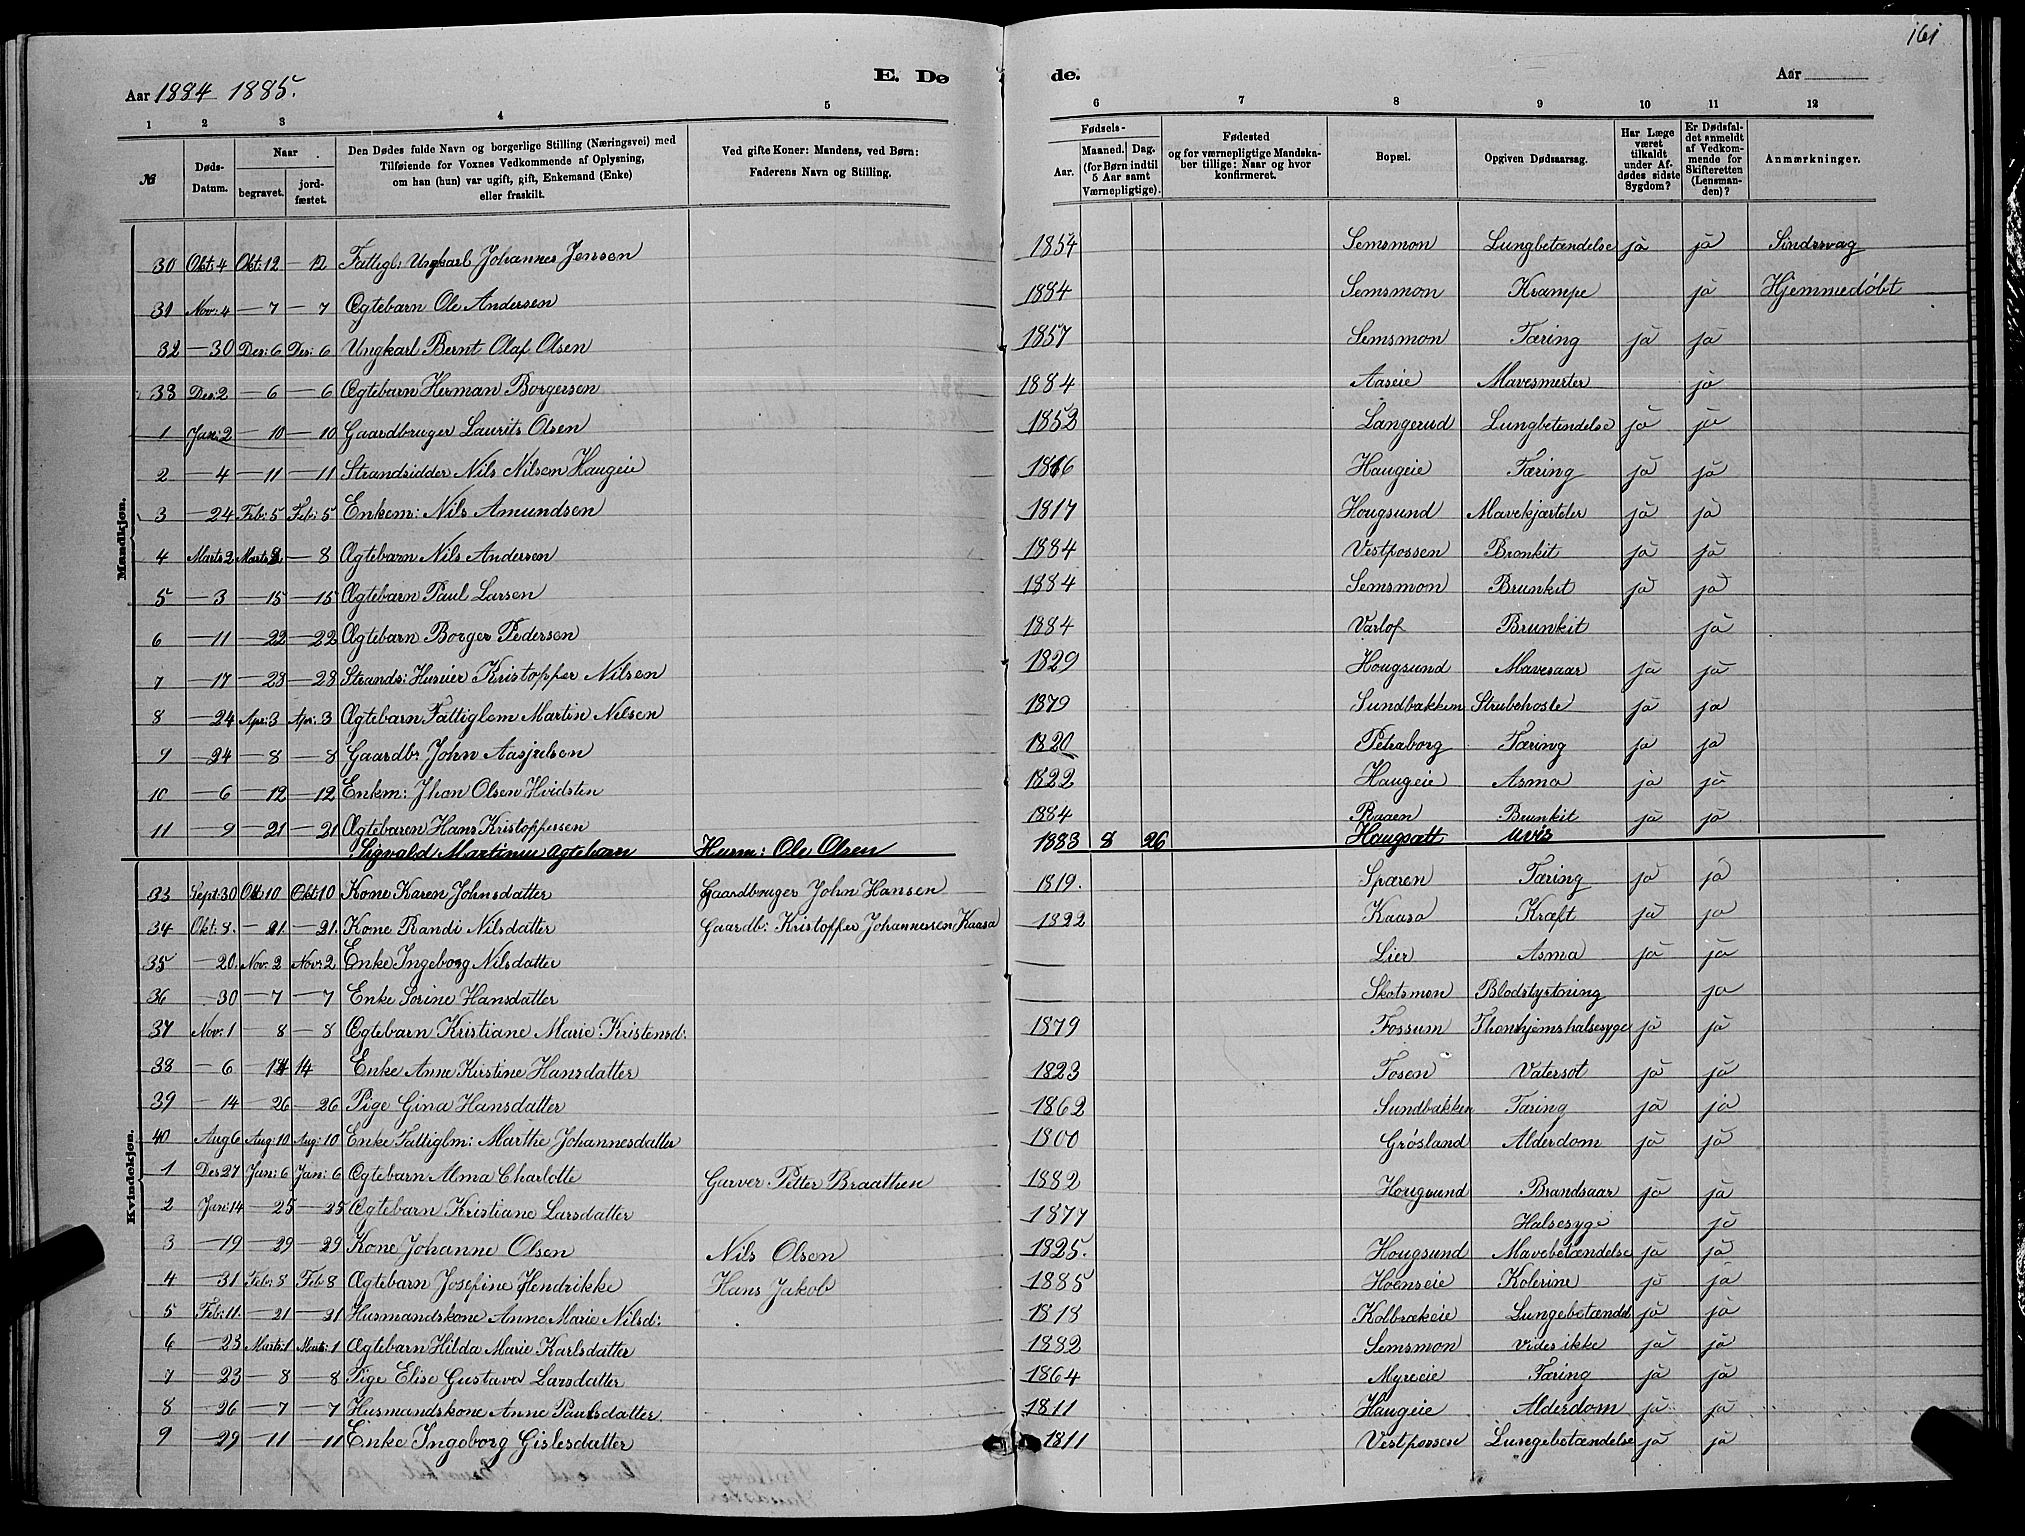 161
E. Dø de.
Aar 1884 1885.
Aar
1 2 3 4 5 6 7 8 9 10 11 12
№
Døds-Datum.
Naar
begravet.
jord-fæstet.
Den Dødes fulde Navn og borgerlige Stilling (Næringsvei) med
Tilføiende for Voxnes Vedkommende af Oplysning,
om han (hun) var ugift, gift, Enkemand (Enke)
eller fraskilt.
Ved gifte Koner: Mandens, ved Børn:
Faderens Navn og Stilling.
Fødsels-
Aar.
Maaned. Dag.
(for Børn indtil
5 Aar samt
Værnepligtige).
Fødested
og for værnepligtige Mandska-
ber tillige: Naar og hvor
konfirmeret.
Bopæl.
Opgiven Dødsaarsag.
Har Læge
været
tilkaldt
under Af-
dødes sidste
Sygdom?
Er Dødsfal-
det anmeldt
af Vedkom-
mende for
Skifteretten
(Lensman-
den)?
Anmærkninger.
Mandkjøn.
30 Okt: 4 Okt: 12 — 12 Fattigl: Ungkarl Johannes Jensen 1854 Semsmon Lungbetændelse ja ja Sindssvag
31 Nov: 4 — 7 — 7 Ægtebarn Ole Andersen 1884 Semsmon Krampe ja Hjemmedøbt
32 — 30 Des: 6 Des: 6 Ungkarl Bernt Olaf Olsen 1857 Semsmon Tæring ja ja
33 Des: 2 — 6 — 6 Ægtebarn Herman Borgersen 1884 Aaseie Mavesmerter ja
1 Jan: 2 — 10 — 10 Gaardbruger Laurits Olsen 1852 Langerud Lungbetændelse ja ja
2 — 4 — 11 — 11 Strandsidder Nils Nilsen Haugeie 1816 Haugeie Tæring ja ja
3 — 24 Feb: 5 Feb: 5 Enkem: Nils Amundsen 1817 Hougsund Mavekjærteler ja ja
4 Marts 2 Marts 8 — 8 Ægtebarn Nils Andersen 1884 Vestfossen Bronkit ja ja
5 — 3 — 15 — 15 Ægtebarn Paul Larsen 1884 Semsmon Brunkit ja ja
6 — 11 — 22 — 22 Ægtebarn Borger Pedersen 1884 Varlof Brunkit ja
7 — 17 — 28 — 28 Strands: Huseier Kristoffer Nilsen 1829 Hougsund Mavesaar ja ja
8 — 24 Apr: 3 Apr: 3 Ægtebarn Fattiglem Martin Nilsen 1879 Sundbakken Strubehoste ja ja
9 — 24 — 8 — 8 Gaardbr John Aasjulsen 1820 Petraborg Tæring ja ja
10 — 6 — 12 — 12 Enkm: Jhan Olsen Hvidsten 1822 Haugeie Asma ja ja
11 — 9 — 21 — 21 Ægtebaren Hans Kristoffersen 1884 Raaen Brunkit ja ja
Sigvald Martinus Ægtebarn Husm: Ole Olsen 1883 8 26 Hougsætt Uvis
Kvindekjøn.
33 Sept: 30 Okt 10 Okt: 10 Kone Karen Johnsdatter Gaardbruger John Hansen 1819. Sparen Tæring ja ja
34 Okt: 8. — 21 — 21. Kone Randi Nilsdatter Gaardb: Kristoffer Johannessen Kaasa 1822 Kaasa Kræft ja ja
35 — 20. Nov: 2 Nov: 2 Enke Ingeborg Nilsdatter — Lier Asma ja ja
36 — 30 — 7 — 7 Enke Sorine Hansdatter — Skotsmon Blodstyrtning ja
37 Nov: 1 — 8 — 8 Ægtebarn Kristiane Marie Kristensd: 1879 Fossum Thondhjemshalsesyge ja ja
38 — 6 — 14 14 Enke Anne Kirstine Hansdatter 1823 Fosen Vatersot ja ja
39 — 14 — 26 — 26 Pige Gina Hansdatter 1862 Sundbakken Tæring ja ja
40 Aug 6 Aug: 10 Aug: 10 Enke Fattiglm: Marthe Johannesdatter 1800 Grøsland Alderdom ja ja
1 Des 27 Jan: 6 Jan: 6 Ægtebarn Alma Charlotte Garver Petter Braathen 1882 Hougsund Brandsaar ja ja
2 Jan: 14 — 25 — 25 Ægtebarn Kristiane Larsdatter 1877 Halsesyge ja
3 — 19 — 29 — 29 Kone Johanne Olsen Nils Olsen 1825. Hougsund Mavebetændelse ja ja
4 — 31 Febr: 8 Feb 8 Ægtebarn Josefine Hendrikke Hans Jakob 1885 Hoenseie Kolerine ja ja
5 Feb: 11. — 21 — 21 Husmandskone Anne Marie Nilsd: 1818 Kolbrækeie Lungebetændel ja ja
6 — 23 Marts: 1 Marts: 1 Ægtebarn Hilda Marie Karlsdatter 1882 Semsmon vides ikke ja ja
7 — 23 — 8 — 8 Pige Elise Gustava Larsdatter 1864 Myreeie Tæring ja ja
8 — 26 — 7 — 7 Husmandskone Anne Paulsdatter 1811 Haugeie Alderdom ja ja
9 — 29 — 11 — 11 Enke Ingeborg Gislesdatter 1811 Vestfossen Lungebetændelse ja ja